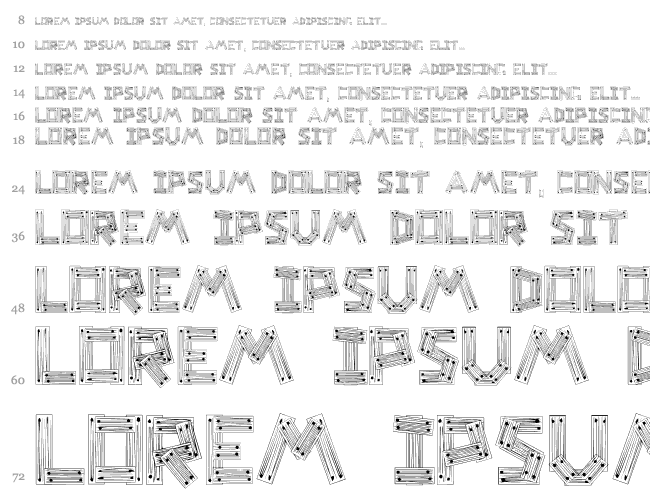 8 LOREM IPSUM DOLOR SIT AMET, CONSECTETUER ADIPISCING ELIT...
10 LOREM IPSUM DOLOR SIT AMET, CONSECTETUER ADIPISCING ELIT...
12 LOREM IPSUM DOLOR SIT AMET, CONSECTETUER ADIPISCING ELIT...
14 LOREM IPSUM DOLOR SIT AMET, CONSECTETUER ADIPISCING ELIT...
16 LOREM IPSUM DOLOR SIT AMET, CONSECTETUER ADIPISCING
18 LOREM IPSUM DOLOR SIT AMET, CONSECTETUER AD
24 LOREM IPSUM DOLOR SIT AMET, CONSE
36 LOREM IPSUM DOLOR SIT
48 LOREM IPSUM DOLO
60 LOREM IPSUM D
72 LOREM IPSUM